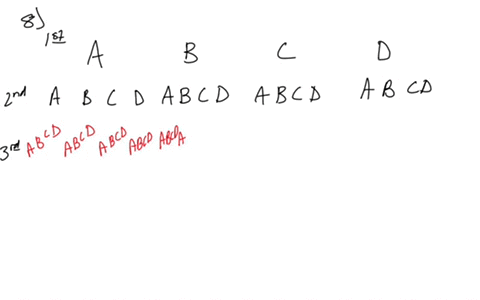 8)
1st
A B C D
2nd A B C D A B C D A B C D A B C D
3rd A B C D A B C D A B C D A B C D A B C D A